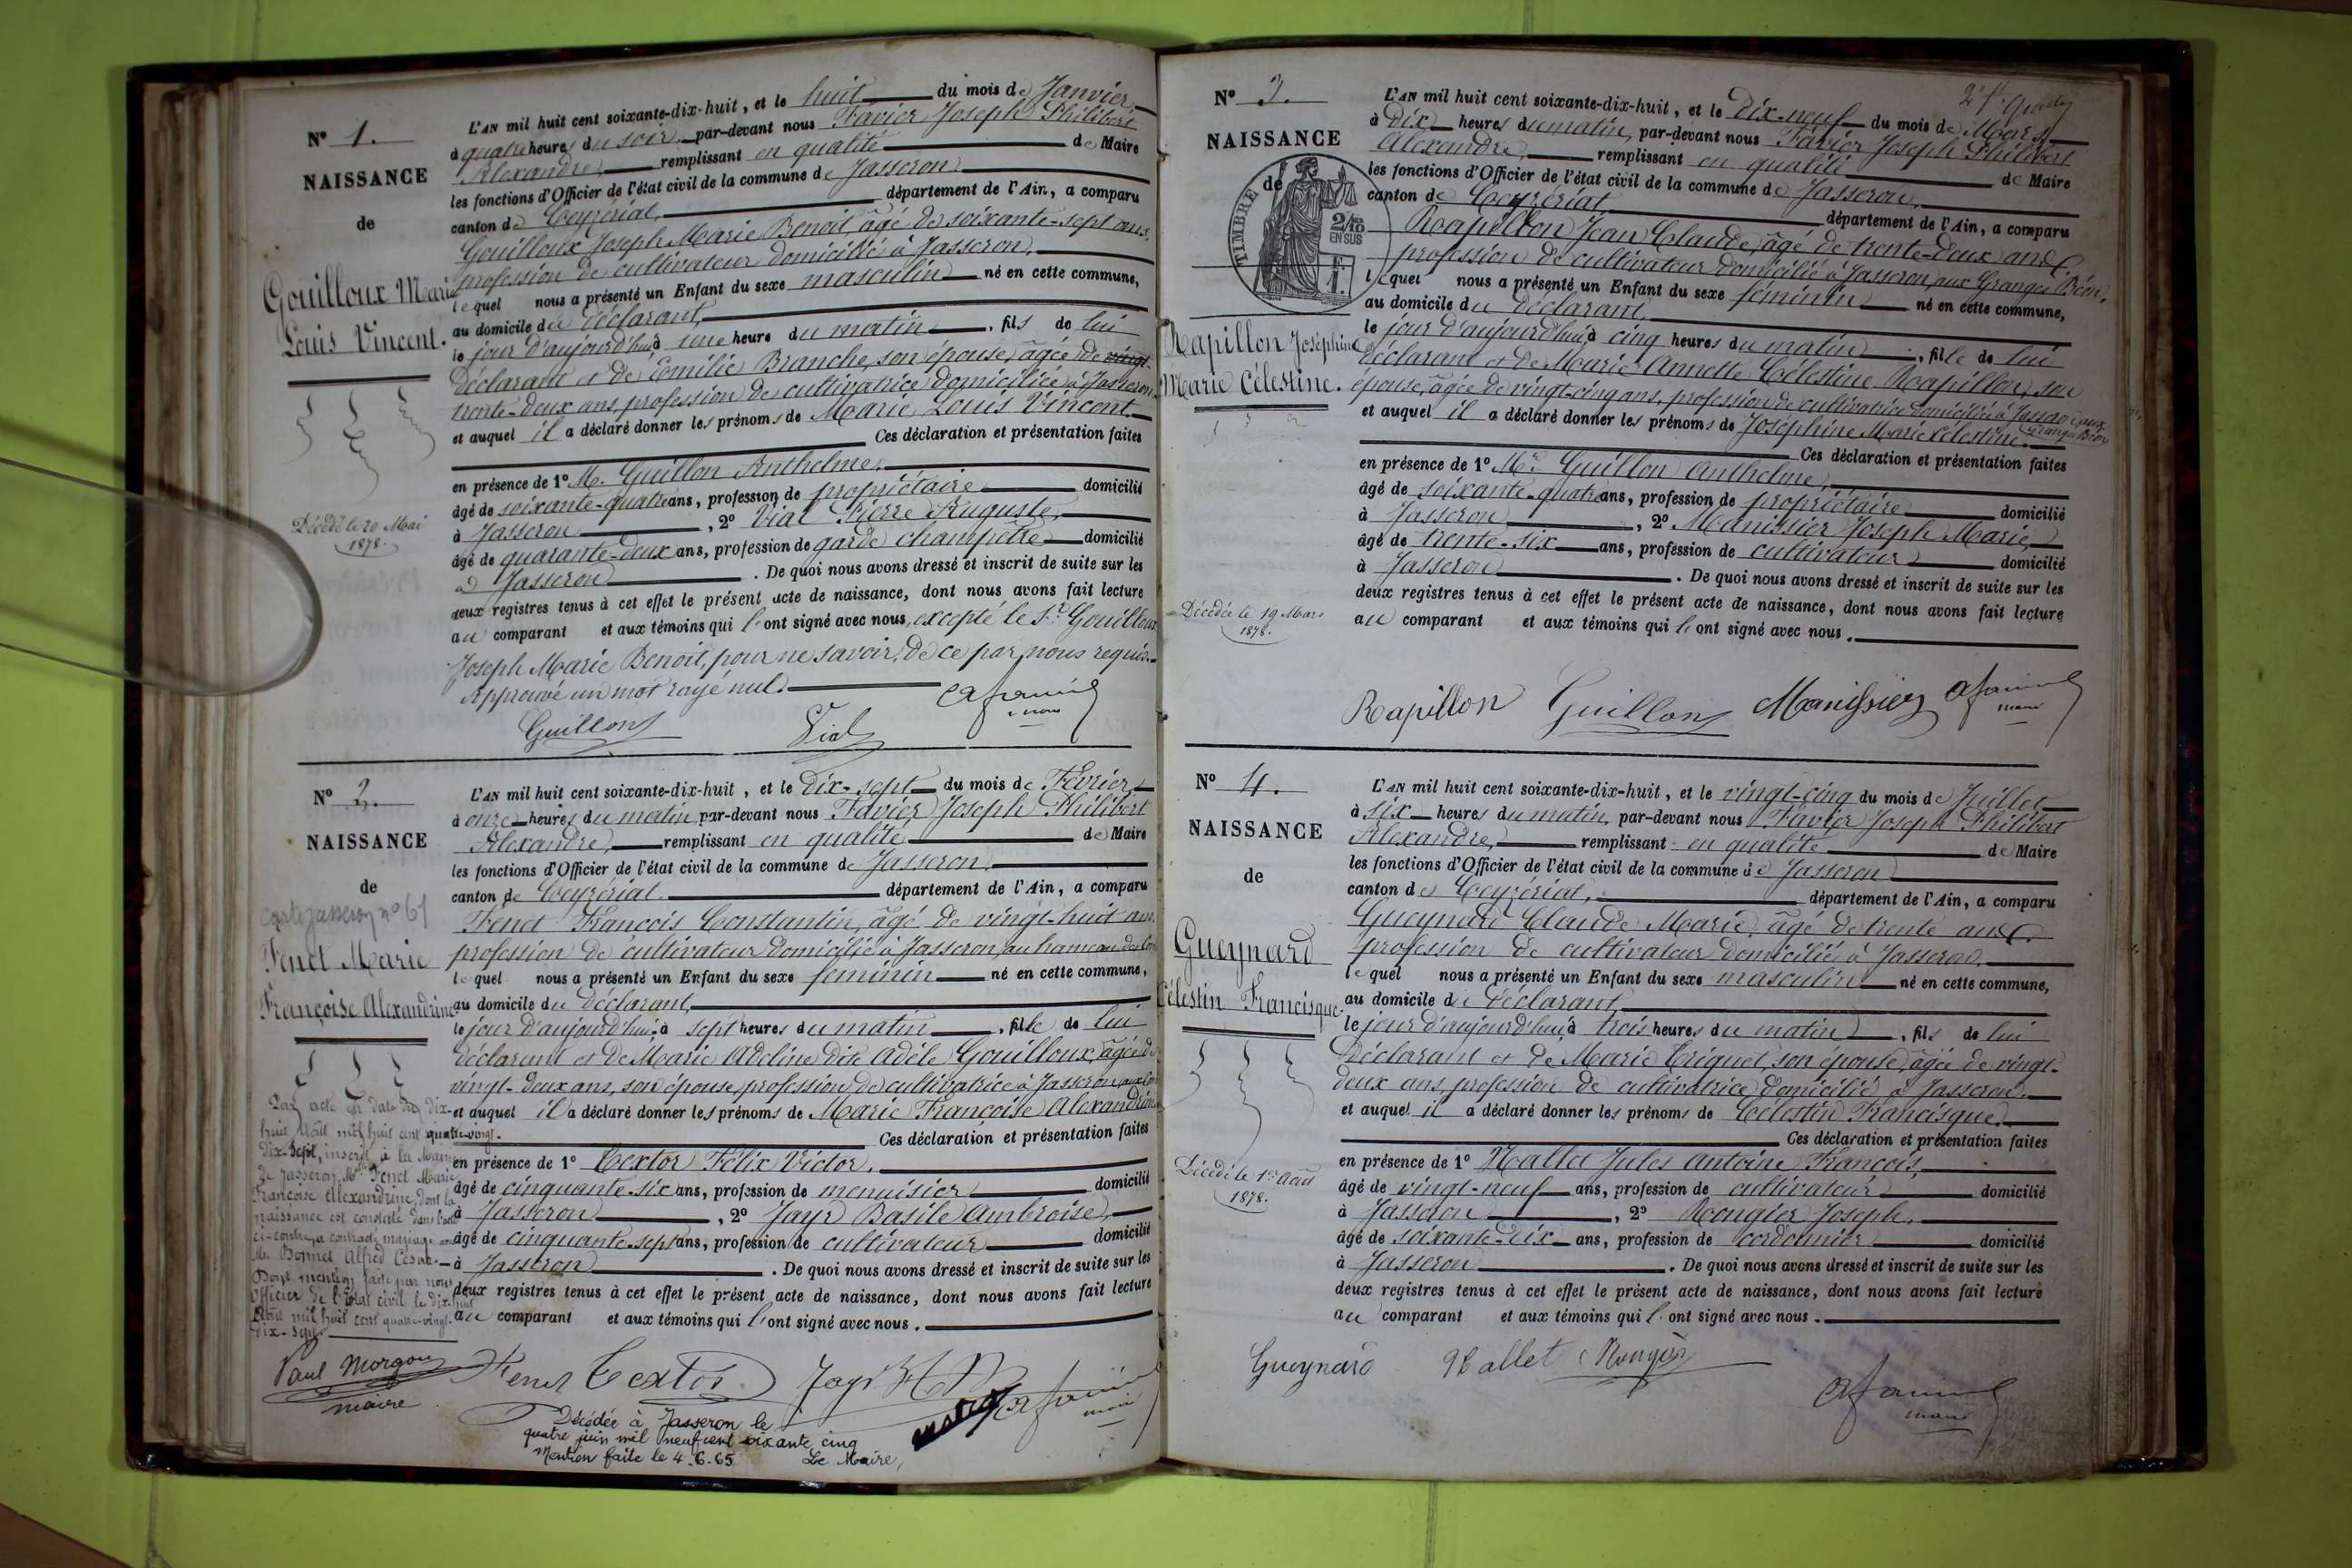 N° 1.
NAISSANCE
de
Gouilloux Marie
Louis Vincent.
Décédé le 20 Mai
1878.
L'AN mil huit cent soixante-dix-huit, et le huit du mois de Janvier,
à quatre heures du soir, par-devant nous Favier Joseph Philibert
Alexandre, remplissant en qualité de Maire
les fonctions d'Officier de l'état civil de la commune de Jasseron
canton de Ceyzériat, département de l'Ain, a comparu
Gouilloux Joseph Marie Benoit âgé de soixante-sept ans,
profession de cultivateur domicilié à Jasseron,
lequel nous a présenté un Enfant du sexe masculin né en cette commune,
au domicile du déclarant,
le jour d'aujourd'hui à une heure du matin, fils de lui
déclarant et de Emilie Branche, son épouse, âgée de vingt-
trente-deux ans, profession de cultivatrice domiciliée à Jasseron
et auquel il a déclaré donner les prénoms de Marie Louis Vincent.
Ces déclaration et présentation faites
en présence de 1° M. Guillon Anthelme,
âgé de soixante-quatre ans, profession de propriétaire domicilié
à Jasseron, 2° Vial Pierre Auguste,
âgé de quarante-deux ans, profession de garde champêtre domicilié
à Jasseron. De quoi nous avons dressé et inscrit de suite sur les
deux registres tenus à cet effet le présent acte de naissance, dont nous avons fait lecture
au comparant et aux témoins qui l'ont signé avec nous, excepté le Sr. Gouilloux
Joseph Marie Benoit, pour ne savoir, de ce par nous requis.
Approuvé un mot rayé nul.
Guillon Vial
N° 2.
NAISSANCE
de
Fenet Marie
Françoise Alexandrine
Par acte en date du dix-
huit Août mil huit cent quatre-vingt-
dix-sept, inscrit à la Mairie
de Jasseron, Melle Fenet Marie
Françoise Alexandrine, dont la
naissance est constatée dans l'acte
ci-contre, a contracté mariage avec
M. Bonnet Alfred César.
Dont mention faite par nous
Officier de l'Etat civil le dix-huit
Août mil huit cent quatre-vingt-
dix-sept.
Paul Morgon
maire
L'AN mil huit cent soixante-dix-huit, et le dix-sept du mois de Février
à onze heures du matin, par-devant nous Favier Joseph Philibert
Alexandre, remplissant en qualité de Maire
les fonctions d'Officier de l'état civil de la commune de Jasseron
canton de Ceyzériat. département de l'Ain, a comparu
Fenet François Constantin, âgé de vingt-huit ans
profession de cultivateur domicilié à Jasseron, au hameau des
lequel nous a présenté un Enfant du sexe féminin né en cette commune,
au domicile du déclarant,
le jour d'aujourd'hui à sept heures du matin, fille de lui
déclarant et de Marie Adeline dite Adèle Gouilloux, âgée de
vingt-deux ans, son épouse, profession de cultivatrice à Jasseron,
et auquel il a déclaré donner les prénoms de Marie Françoise Alexandrine
Ces déclaration et présentation faites
en présence de 1° Textor Félix Victor,
âgé de cinquante-six ans, profession de menuisier domicilié
à Jasseron, 2° Jayr Basile Ambroise,
âgé de cinquante-sept ans, profession de cultivateur domicilié
à Jasseron. De quoi nous avons dressé et inscrit de suite sur les
deux registres tenus à cet effet le présent acte de naissance, dont nous avons fait lecture
au comparant et aux témoins qui l'ont signé avec nous.
Fenet Textor Jayr
Décédée à Jasseron le
quatre juin mil neuf cent soixante cinq
Mention faite le 4.6.65
Le Maire,
N° 3.
NAISSANCE
de
TIMBRE
2/10
EN SUS
Rapillon Joséphine
Marie Célestine.
Décédée le 19 Mars
1878.
L'AN mil huit cent soixante-dix-huit, et le dix-neuf du mois de Mars
à dix heures du matin, par-devant nous Favier Joseph Philibert
Alexandre, remplissant en qualité de Maire
les fonctions d'Officier de l'état civil de la commune de Jasseron,
canton de Ceyzériat département de l'Ain, a comparu
Rapillon Jean Claude, âgé de trente-deux ans
profession de cultivateur domicilié à Jasseron, aux Granges
lequel nous a présenté un Enfant du sexe féminin né en cette commune,
au domicile du déclarant,
le jour d'aujourd'hui à cinq heures du matin, fille de lui
déclarant et de Marie Annette Célestine Rapillon, son
épouse, âgée de vingt-cinq ans, profession de cultivatrice domiciliée à Jasseron, aux
et auquel il a déclaré donner les prénoms de Joséphine Marie Célestine.
Ces déclaration et présentation faites
en présence de 1° Mr. Guillon Anthelme,
âgé de soixante-quatre ans, profession de propriétaire domicilié
à Jasseron, 2° Manissier Joseph Marie,
âgé de trente-six ans, profession de cultivateur domicilié
à Jasseron. De quoi nous avons dressé et inscrit de suite sur les
deux registres tenus à cet effet le présent acte de naissance, dont nous avons fait lecture
au comparant et aux témoins qui l'ont signé avec nous.
Rapillon Guillon Manissier
N° 4.
NAISSANCE
de
Gueynard
Célestin Francisque.
Décédé le 1er Août
1878.
L'AN mil huit cent soixante-dix-huit, et le vingt-cinq du mois de Juillet
à six heures du matin, par-devant nous Favier Joseph Philibert
Alexandre, remplissant en qualité de Maire
les fonctions d'Officier de l'état civil de la commune de Jasseron
canton de Ceyzériat, département de l'Ain, a comparu
Gueynard Claude Marie, âgé de trente ans
profession de cultivateur domicilié à Jasseron.
lequel nous a présenté un Enfant du sexe masculin né en cette commune,
au domicile du déclarant,
le jour d'aujourd'hui à trois heures du matin, fils de lui
déclarant et de Marie son épouse, âgée de vingt-
deux ans, profession de cultivatrice domiciliée à Jasseron.
et auquel il a déclaré donner les prénoms de Célestin Francisque.
Ces déclaration et présentation faites
en présence de 1° Hallet Jules Antoine François,
âgé de vingt-neuf ans, profession de cultivateur domicilié
à Jasseron, 2° Rougier Joseph,
âgé de soixante-dix ans, profession de cordonnier domicilié
à Jasseron. De quoi nous avons dressé et inscrit de suite sur les
deux registres tenus à cet effet le présent acte de naissance, dont nous avons fait lecture
au comparant et aux témoins qui l'ont signé avec nous.
Gueynard Hallet Rougier